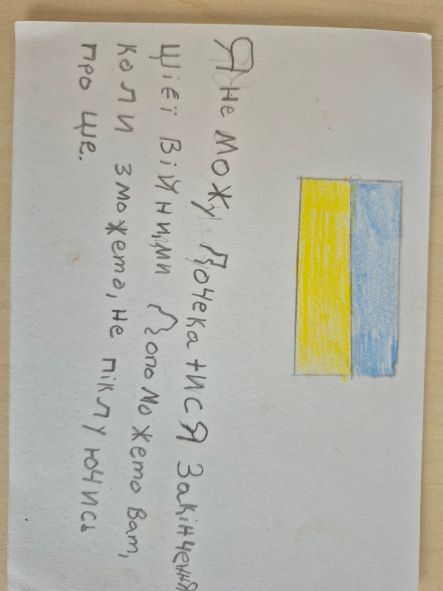 Я не можу дочекатися закінчення
цієї війни, ми допоможето вам,
коли зможето, не піклуючись
про це.